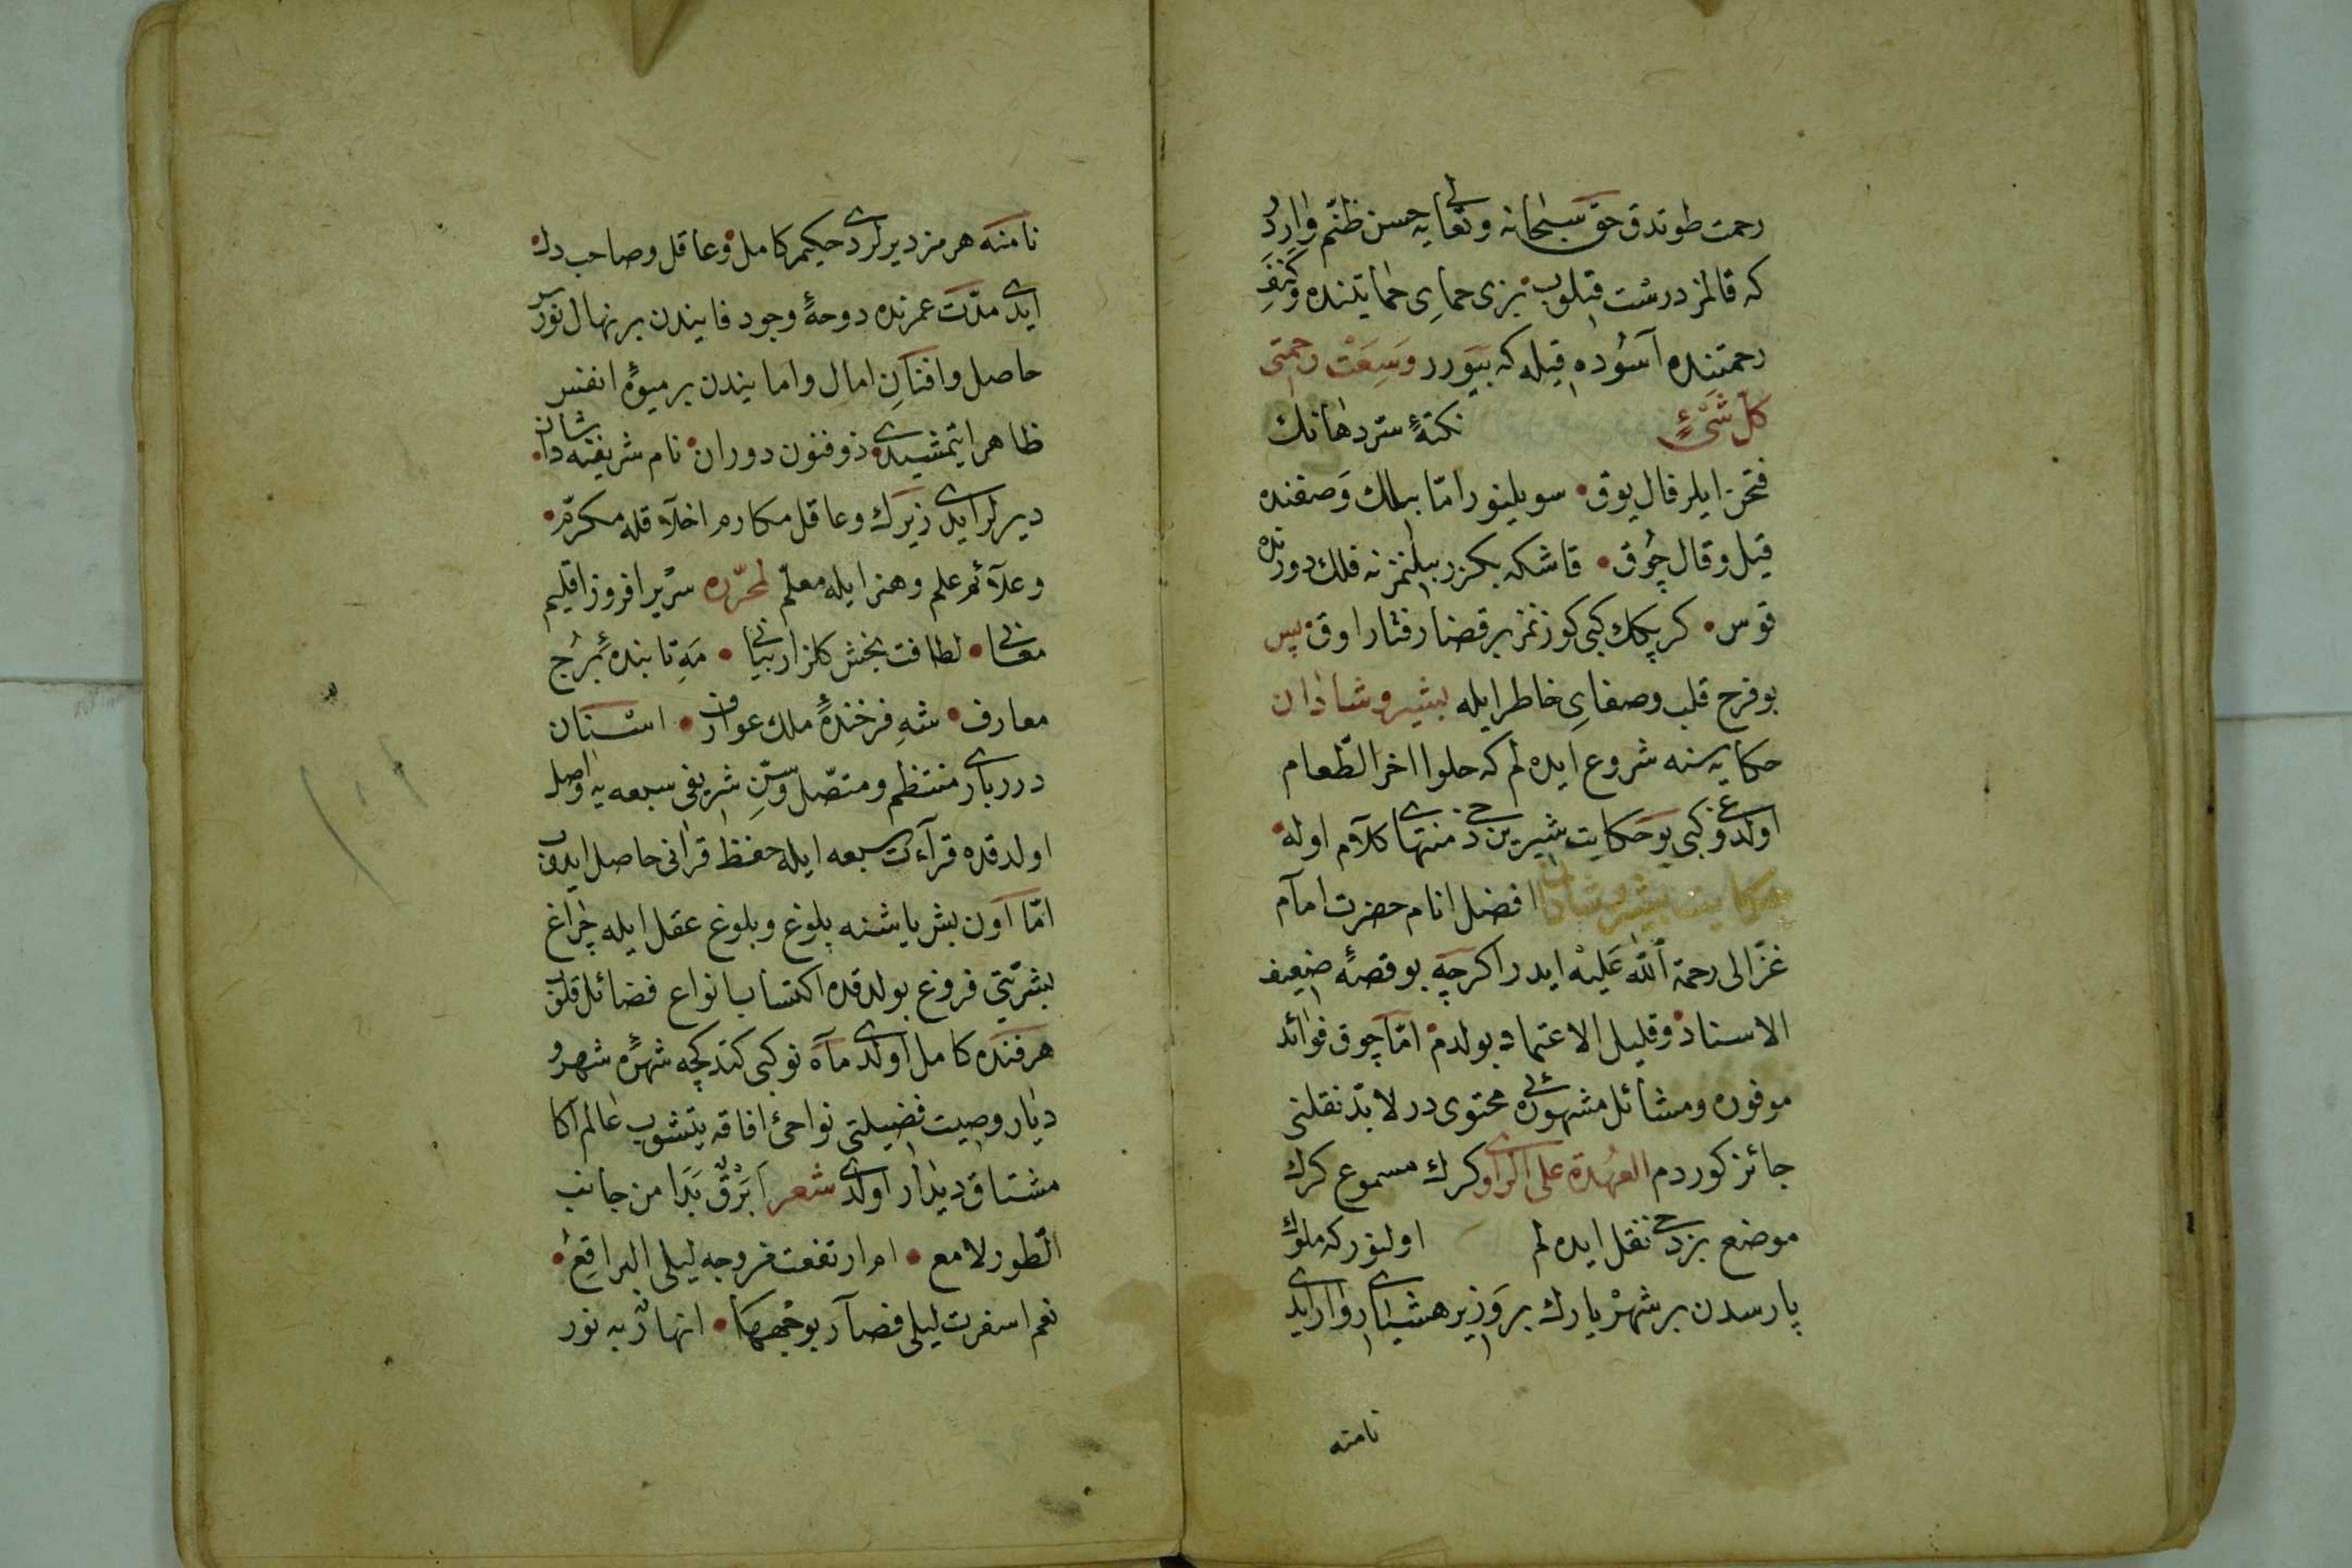 رحمت طوتدق حق سبحانه وتعالی یه حسن ظنّم واردر
که قالمز درست قیلوب بزی حمایِ حمایتنده وکنفِ
رحمتنده آسوده قیله که بیورر وَسِعَتْ رحمتی
کلّ شَیْءٍ نکتهٔ ستر دهانك
فتحن ایلر فال یوق • سویلینور امّا بیلك وَصفنده
قیل وقال چُوق • قاشکه بکزر بیلنمز نه فلك دورنده
قوس • کرپیکك کبی کوزنمز بر قضا رفتار اوق • پس
بو فرح قلب وصفایِ خاطر ایله بشیر وشادان
حکایه سنه شروع ایده لم که حلوا اخر الطّعام
اولدوغی کبی بو حکایت شیرین دخی منتهای کلام اوله •
حکایت بشیر وشادان افضل انام حضرت امام
غزّالی رحمة الله عَلیْه ایدر اکرچه بو قصهٔ ضعیف
الاسناد وقلیل الاعتماد بولدم • امّا چوق فوائد
موفوره ومسائل مشهوره ئی محتوی در لا بدّ نقلنی
جائز کوردم العُهدة علی الراوی کرك مسموع کرك
موضع بز دخی نقل ایده لم اولنور که ملوك
پارسدن بر شهریارك بر وَزیر هشیاری وار ایدی
نامنه
نامنه هرمز دیرلردی حکیم کامل • وعاقل وصاحب دل •
ایدی مدّت عمرنده دوحهٔ وجود فایندن بر نهال نورس
حاصل وافنانِ امال وامانیندن بر میوهٔ انفس
ظاهر ایتمشیدی • ذو فنون دوران • نام شریفنه شادان •
دیرلر ایدی زیرك وعاقل مکارم اخلاقله مکرّم •
وعلائم علم وهنر ایله معلّم لمحرّره سریر افروز اقلیم
معانی • لطافت بخش کلزار بیانی • مَهِ تابندهٔ بُرج
معارف • شهِ فرخندهٔ ملك عوارف • اسنان
درر باری منتظم ومتصّل وسِنِّ شریفی سبعه یه واصل
اولدقده قرآءت سبعه ایله حفظ قرانی حاصل ایدوب
امّا اون بش یاشنه بلوغ وبلوغ عقل ایله چراغ
بشریّتی فروغ بولدقده اکتساب انواع فضائل قلوب
هر فنده کامل اولدی ماه نو کبی کتدکچه شهرهٔ شهر و
دیار وصیت فضیلتی نواحئ افاقه یتشوب عالم اکا
مشتاق دیدار اولدی شعر اَبَرْقٌ بَدَا من جانب
الطور لامع • ام ارتفعت عن وجه لیلی البراقِع •
نعم اسفرت لیلی فصار بوجهها • انهارٌ به نور